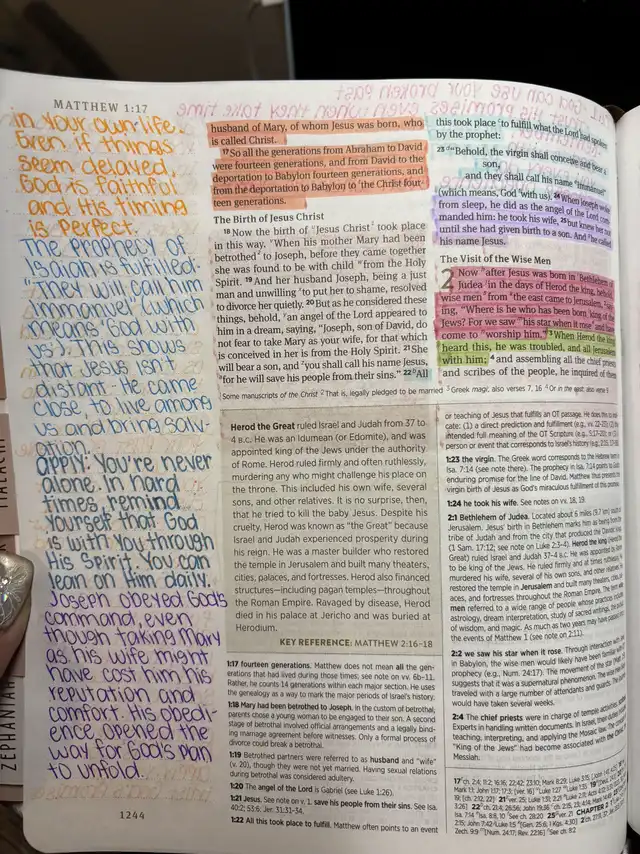 MATTHEW 1:17
in your own life.
Even if things
seem delayed,
God is faithful
and His timing
is perfect.
The prophecy of
Isaiah is fulfilled:
"They will call him
Immanuel", which
means "God with
us". This shows
that Jesus isn't
distant- He came
close to live among
us and bring salv-
ation.
APPLY: You're never
alone. In hard
times remind
yourself that God
is with you through
His Spirit. You can
lean on Him daily.
Joseph obeyed God's
command, even
though taking Mary
as his wife might
have cost him his
reputation and
comfort. His obedi-
ence opened the
way for God's plan
to unfold.
1244
husband of Mary, of whom Jesus was born, who
is called Christ.
17 So all the generations from Abraham to David
were fourteen generations, and from David to the
deportation to Babylon fourteen generations, and
from the deportation to Babylon to the Christ four-
teen generations.
The Birth of Jesus Christ
18 Now the birth of Jesus Christ took place
in this way. When his mother Mary had been
betrothed to Joseph, before they came together
she was found to be with child from the Holy
Spirit. 19 And her husband Joseph, being a just
man and unwilling to put her to shame, resolved
to divorce her quietly. 20 But as he considered these
things, behold, an angel of the Lord appeared to
him in a dream, saying, "Joseph, son of David, do
not fear to take Mary as your wife, for that which
is conceived in her is from the Holy Spirit. 21 She
will bear a son, and you shall call his name Jesus,
for he will save his people from their sins." 22 All
this took place to fulfill what the Lord had spoken
by the prophet:
23 "Behold, the virgin shall conceive and bear a
son,
and they shall call his name Immanuel"
(which means, God with us). 24 When Joseph woke
from sleep, he did as the angel of the Lord com-
manded him: he took his wife, 25 but knew her not
until she had given birth to a son. And he called
his name Jesus.
The Visit of the Wise Men
2 Now after Jesus was born in Bethlehem of
Judea in the days of Herod the king, behold,
wise men from the east came to Jerusalem, 2 say-
ing, "Where is he who has been born king of the
Jews? For we saw his star when it rose and have
come to worship him." 3 When Herod the king
heard this, he was troubled, and all Jerusalem
with him; 4 and assembling all the chief priests
and scribes of the people, he inquired of them
Some manuscripts of the Christ 2 That is, legally pledged to be married 3 Greek magi; also verses 7, 16 4 Or in the east; also verse 9
Herod the Great ruled Israel and Judah from 37 to
4 B.C. He was an Idumean (or Edomite), and was
appointed king of the Jews under the authority of
Rome. Herod ruled firmly and often ruthlessly,
murdering any who might challenge his place on
the throne. This included his own wife, several
sons, and other relatives. It is no surprise, then,
that he tried to kill the baby Jesus. Despite his
cruelty, Herod was known as "the Great" because
Israel and Judah experienced prosperity during
his reign. He was a master builder who restored
the temple in Jerusalem and built many theaters,
cities, palaces, and fortresses. Herod also financed
structures—including pagan temples—throughout
the Roman Empire. Ravaged by disease, Herod
died in his palace at Jericho and was buried at
Herodium.
KEY REFERENCE: MATTHEW 2:16-18
1:17 fourteen generations. Matthew does not mean all the gen-
erations that had lived during those times; see note on vv. 6b–11.
Rather, he counts 14 generations within each major section. He uses
the genealogy as a way to mark the major periods of Israel's history.
1:18 Mary had been betrothed to Joseph. In the custom of betrothal,
parents chose a young woman to be engaged to their son. A second
stage of betrothal involved official arrangements and a legally bind-
ing marriage agreement before witnesses. Only a formal process of
divorce could break a betrothal.
1:19 Betrothed partners were referred to as husband and "wife"
(v. 20), though they were not yet married. Having sexual relations
during betrothal was considered adultery.
1:20 The angel is Gabriel (see Luke 1:26).
1:21 Jesus. See note on v. 1. save his people from their sins. See Isa.
40:2; 53:6; Jer. 31:31–34.
1:22 All this took place to fulfill. Matthew often points to an event
or teaching of Jesus that fulfills an OT passage.
1:23 the virgin. The Greek word corresponds to the Hebrew
Isa. 7:14 (see note there). The prophecy in Isa. 7:14 points to God's
enduring promise for the line of David. Matthew
virgin birth of Jesus as God's miraculous fulfillment of this
1:24 he took his wife. See notes on vv. 18, 19.
2:1 Bethlehem of Judea. Located about 6 miles (9.7 km)
Jerusalem.
the events of Matthew 1 (see note on 2:11).
2:2 we saw his star when it rose. Through interaction with
in Babylon, the wise men would likely have been familiar with
prophecy (e.g., Num. 24:17). The movement of the star
suggests that it was a supernatural phenomenon. The wise men
traveled with a large number of attendants and guards.
would have taken several weeks.
2:4 The chief priests were in charge of temple activities.
Experts in handling written documents.
teaching, interpreting, and applying the Mosaic law.
"King of the Jews" had become associated with the
Messiah.
MALACHI
ZEPHANIAH